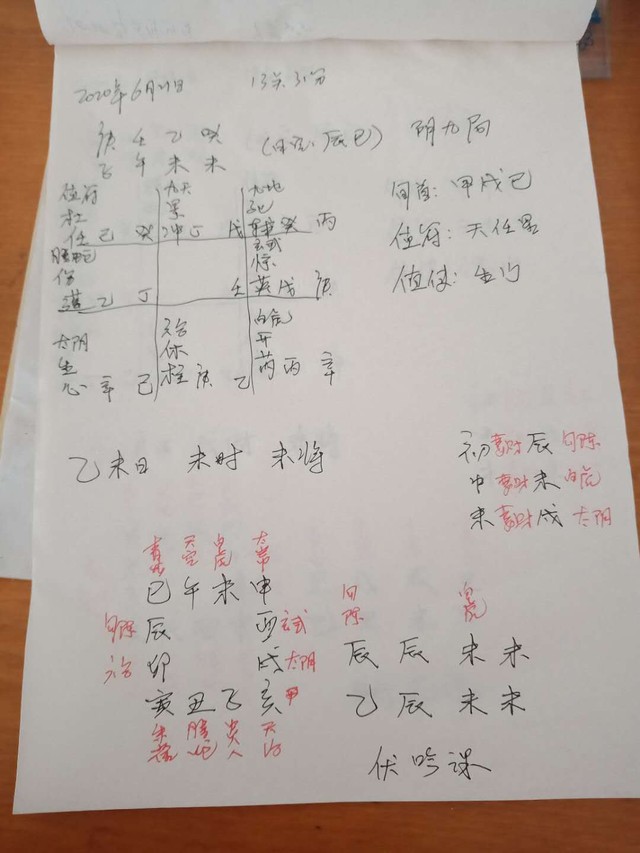 2020年6月21日 13点31分
庚 壬 乙 癸
子 午 未 未 (日空:辰巳) 阴九局
值符 九天 九地
杜 景 死
任 己 癸 冲 丁 戊 癸 丙
螣蛇 玄武
伤 惊
乙 丁 壬 英 戊 庚
太阴 六合 白虎
生 休 开
心 辛 己 柱 庚 乙 芮 丙 辛
旬首:甲戌己
值符:天任星
值使:生门
乙未日 未时 未将
初 妻财 辰 勾陈
中 妻财 未 白虎
末 妻财 戌 太阴
青龙 天空 白虎 太常
巳 午 未 申
勾陈 辰 酉 玄武
六合 卯 戌 太阴
寅 丑 子 亥
朱雀 螣蛇 贵人 天后
勾陈 白虎
辰 辰 未 未
乙 辰 未 未
伏吟课